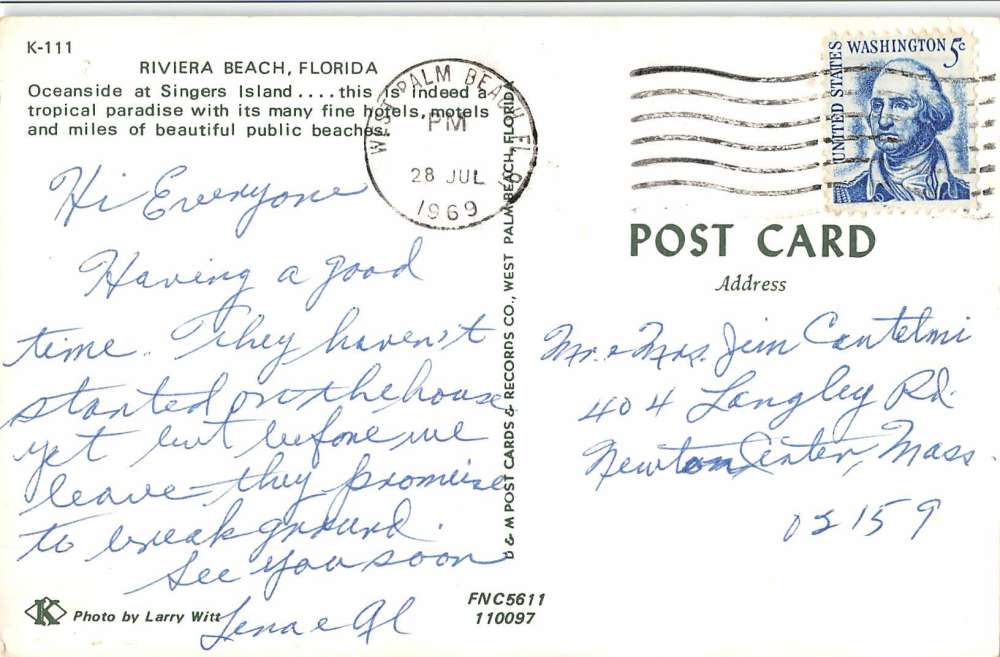 K-111
RIVIERA BEACH, FLORIDA
Oceanside at Singers Island....this is indeed a
tropical paradise with its many fine hotels, motels
and miles of beautiful public beaches.
WEST PALM BEACH, FL
PM
28 JUL
1969
Hi Everyone
Having a good
time. They haven't
started on the house
yet but before we
leave they promise
to break ground.
See you soon
Lena e Al
K Photo by Larry Witt
D & M POST CARDS & RECORDS CO., WEST PALM BEACH, FLORIDA
FNC5611
110097
UNITED STATES
WASHINGTON 5c
POST CARD
Address
Mr. e Mrs. Jim Cantelmi
404 Langley Rd.
Newton Center, Mass.
02159